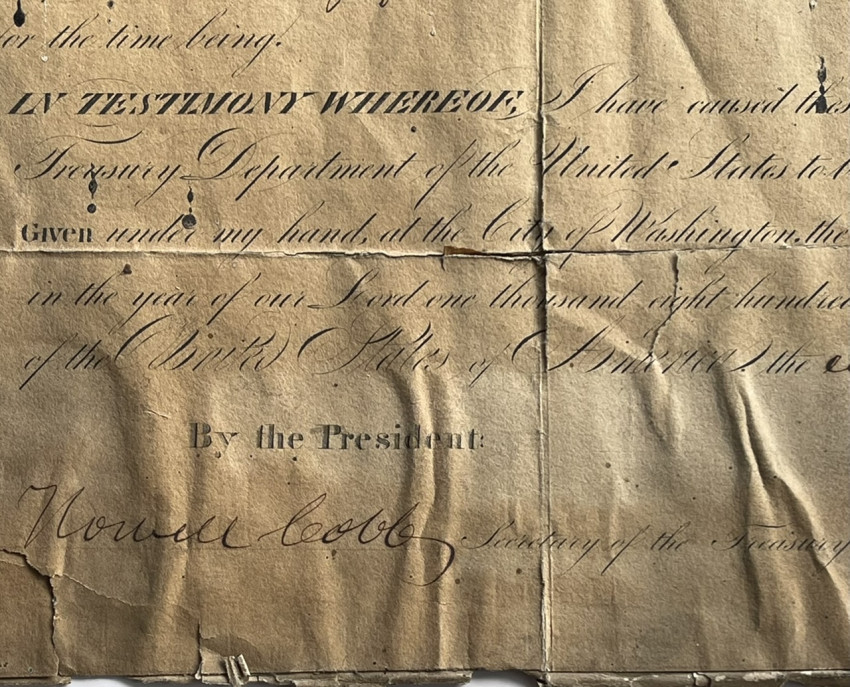 for the time being.
IN TESTIMONY WHEREOF, I have caused thes
Treasury Department of the United States to b
Given under my hand, at the City of Washington, the
in the year of our Lord one thousand eight hundred
of the United States of America, the
By the President:
Howell Cobb, Secretary of the Treasury